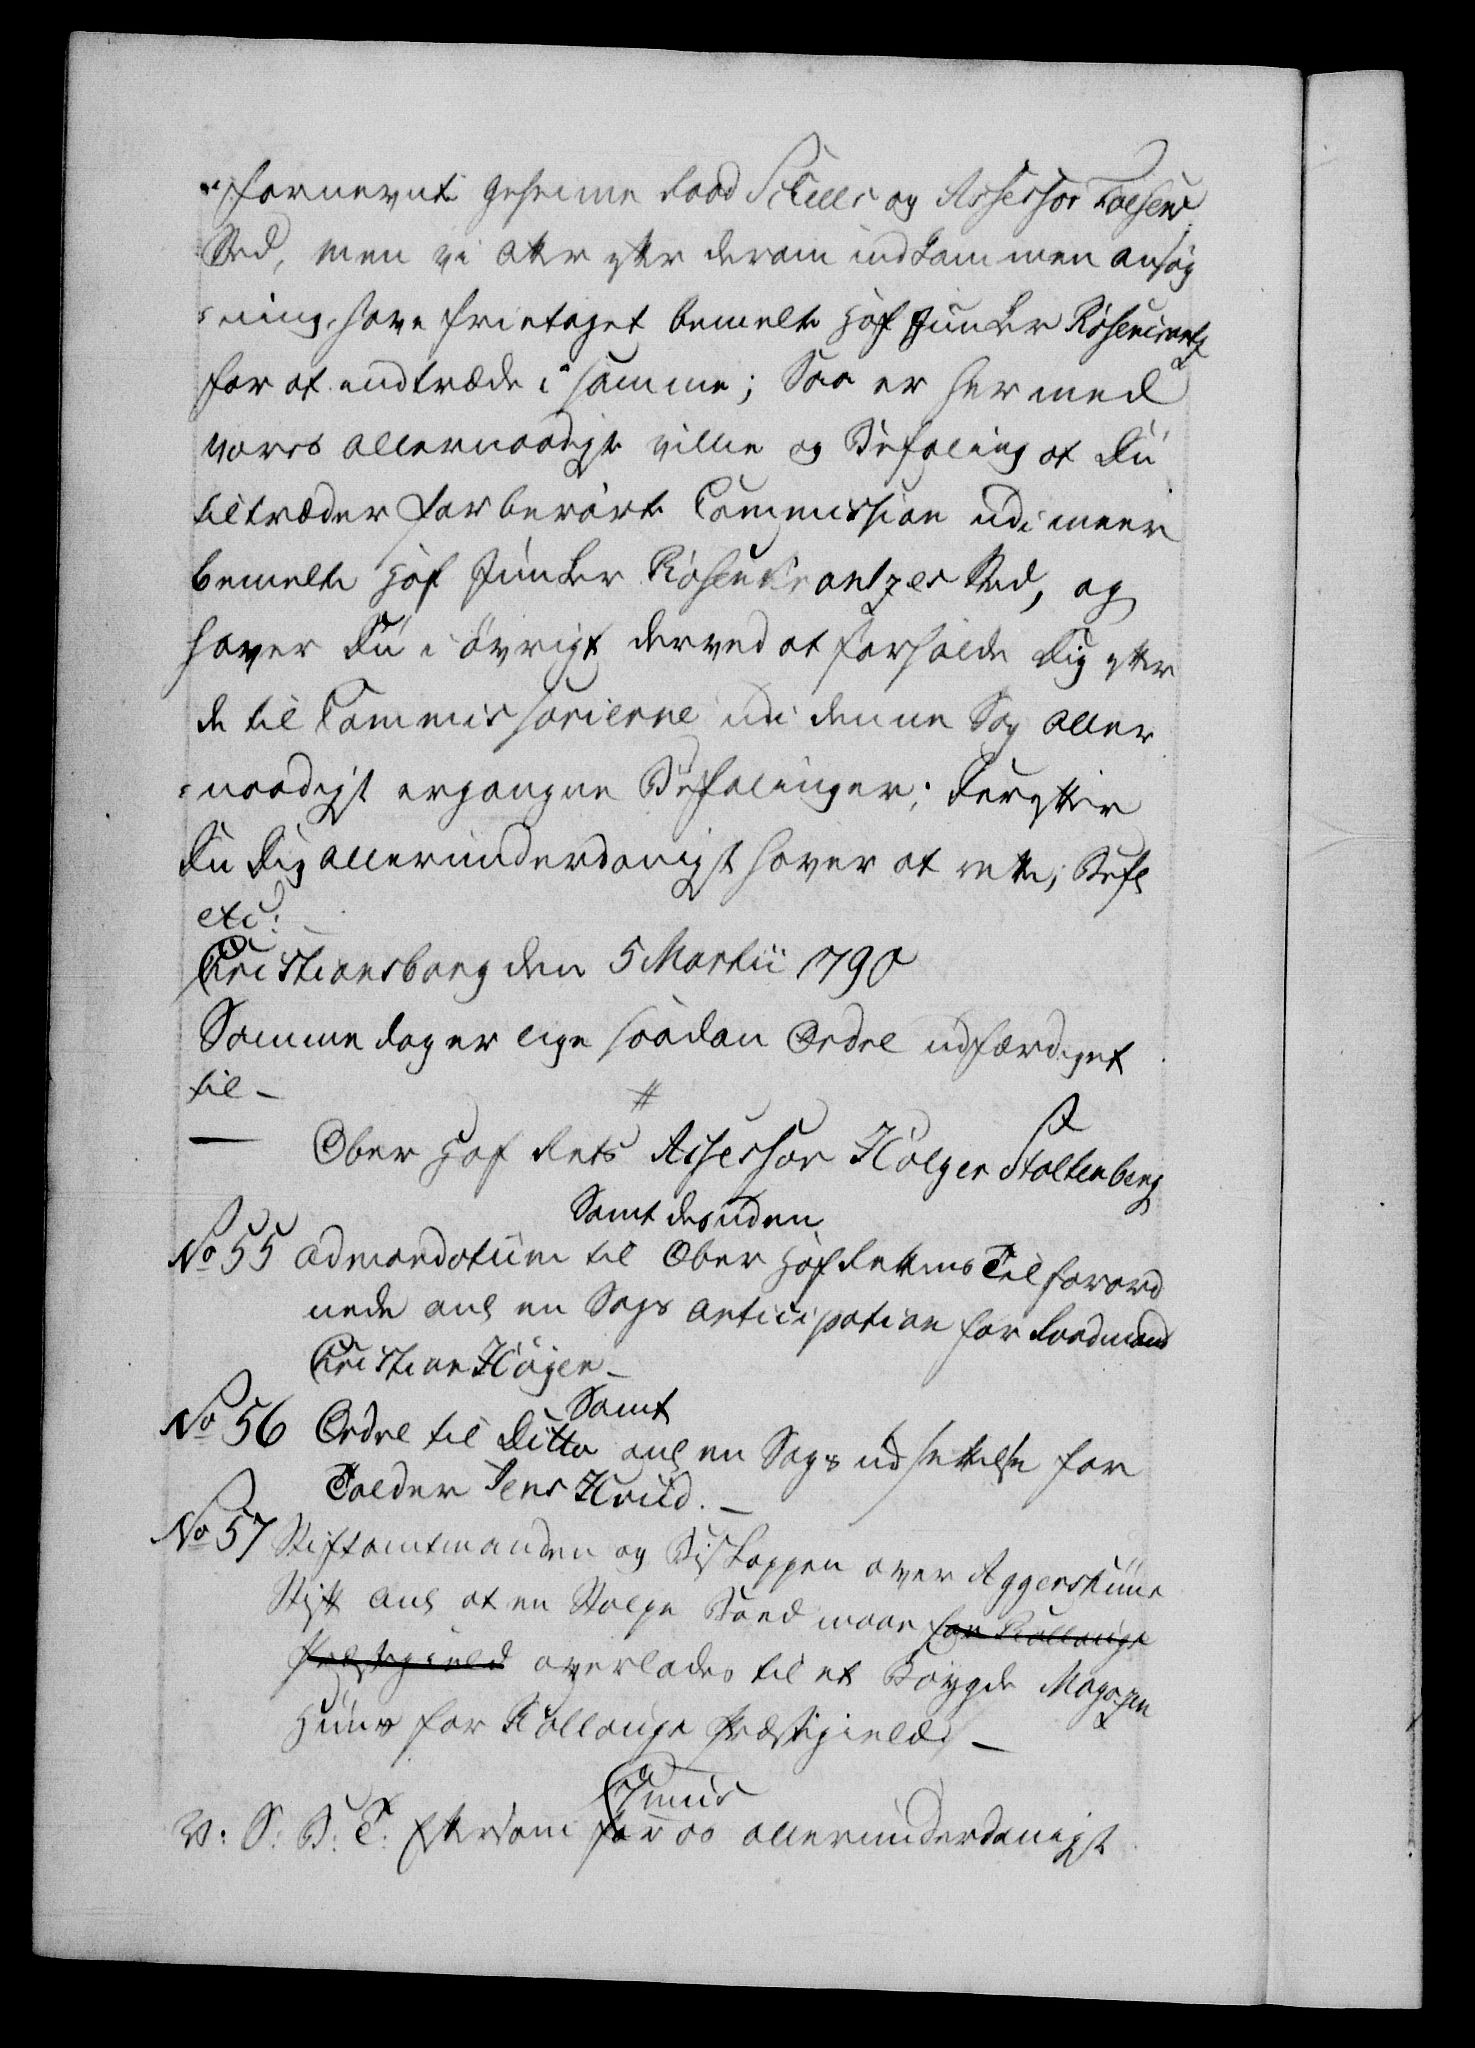 fornevnte Geheime Raad Schells og Assessor Colsens
Sted, men vi atter efter derom indkommen ansøg
-ning, have frietaget bemelte Hof Junker Rosencrantz
for at indtræde i samme; Saa er hermed
vores allernaadigste villie og Befaling at Du
tiltræder forberørte Commission udi meer
bemelte Hof Junker Rosenkrantzes Sted, og
haver Du i øvrigt derved at forholde Dig efter
de til Commissarierne udi denne Sag aller
-naadigst ergangne Befalinger; Derefter
Du Dig allerunderdanigst haver at rette; Befl
etc:
Christiansborg den 5 Martii 1790
Samme dag er lige saadan Ordre udfærdiget
til -
Ober Hof Rets Assessor Holger Stoltenberg
Samt desuden
No 55 admandatum til Ober Hof Rettens Tilforord
nede anl en Sags anticipation for Kiødmand
Christian Høyer -
Samt
No 56 Ordre til Ditto anl en Sags udsettelse for
Tolder Jens Hvid. -
No 57 Stiftamtmanden og Biskoppen over Aggershuus
Stift anl at en Stolpe Boed maae for Hollouge
Præstegield overlades til et Bøygde Magazin
Huus for Hollouge Præstegield -
V: S: B: T: Eftersom for os allerunderdanigst